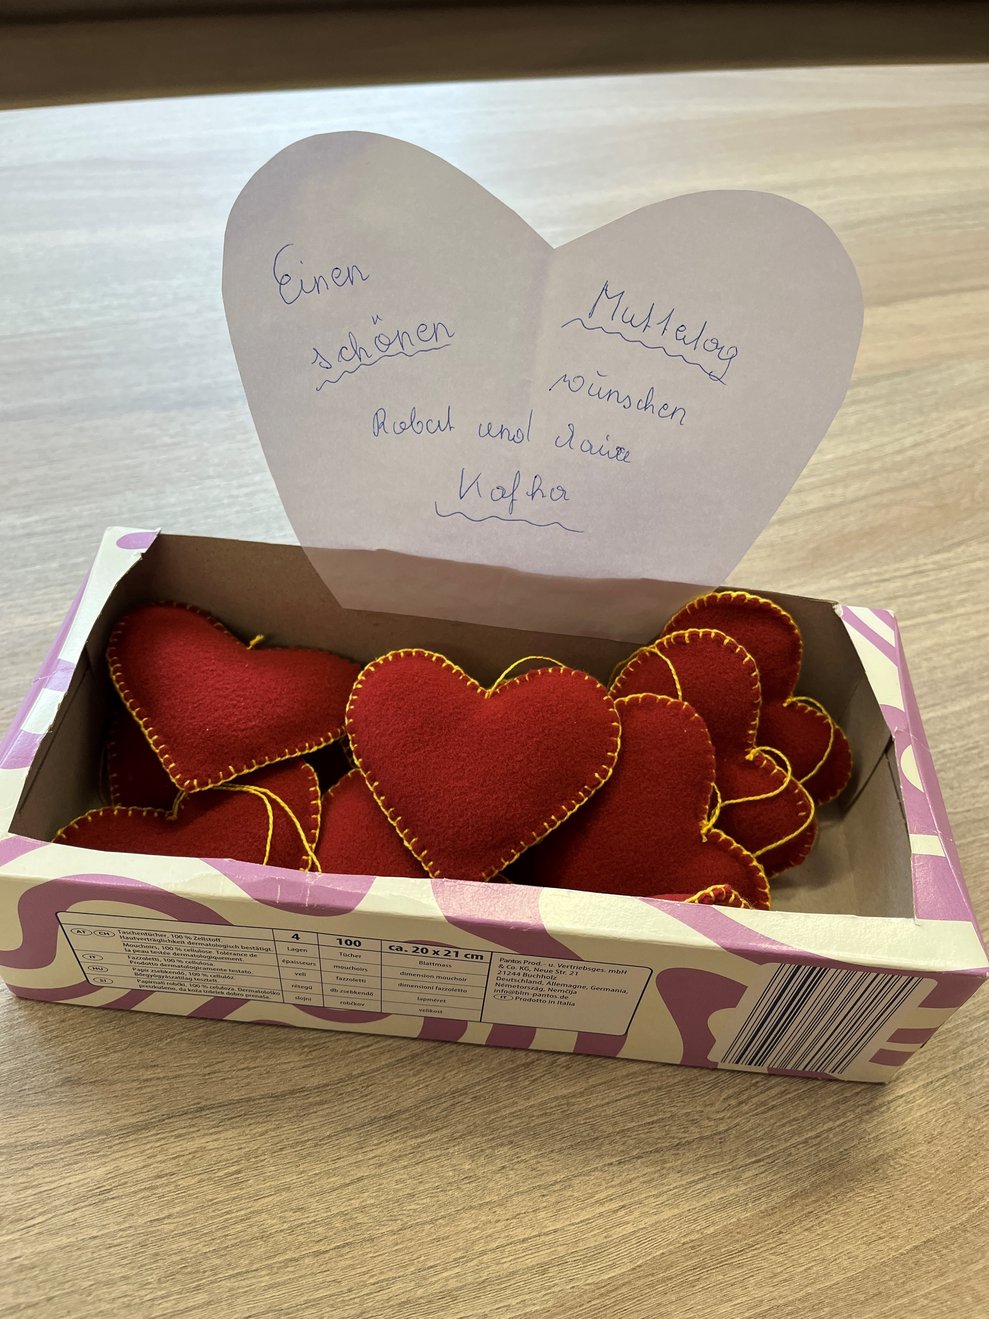 Einen
schönen
Muttertag
wünschen
Robert und
Kafka
AT CH Taschentücher, 100 % Zellstoff.
Hautverträglichkeit dermatologisch bestätigt.
Mouchoirs, 100 % cellulose. Tolérance de
la peau testée dermatologiquement.
IT Fazzoletti, 100 % cellulosa.
Prodotto dermatologicamente testato.
HU Papír zsebkendő, 100 % cellulóz.
Bőrgyógyászatilag tesztelt.
SI Papirnati robčki, 100 % celuloza. Dermatološko
preizkušeno, da koža izdelek dobro prenaša.
4
Lagen
épaisseurs
veli
rétegű
slojni
100
Tücher
mouchoirs
fazzoletti
db zsebkendő
robčkov
ca. 20 x 21 cm
Blattmass
dimension mouchoir
dimensioni fazzoletto
lapméret
velikost
Pantos Prod.- u. Vertriebsges. mbH
& Co. KG, Neue Str. 21
21244 Buchholz
Deutschland, Allemagne, Germania,
Németország, Nemčija
info@blm-pantos.de
IT Prodotto in Italia